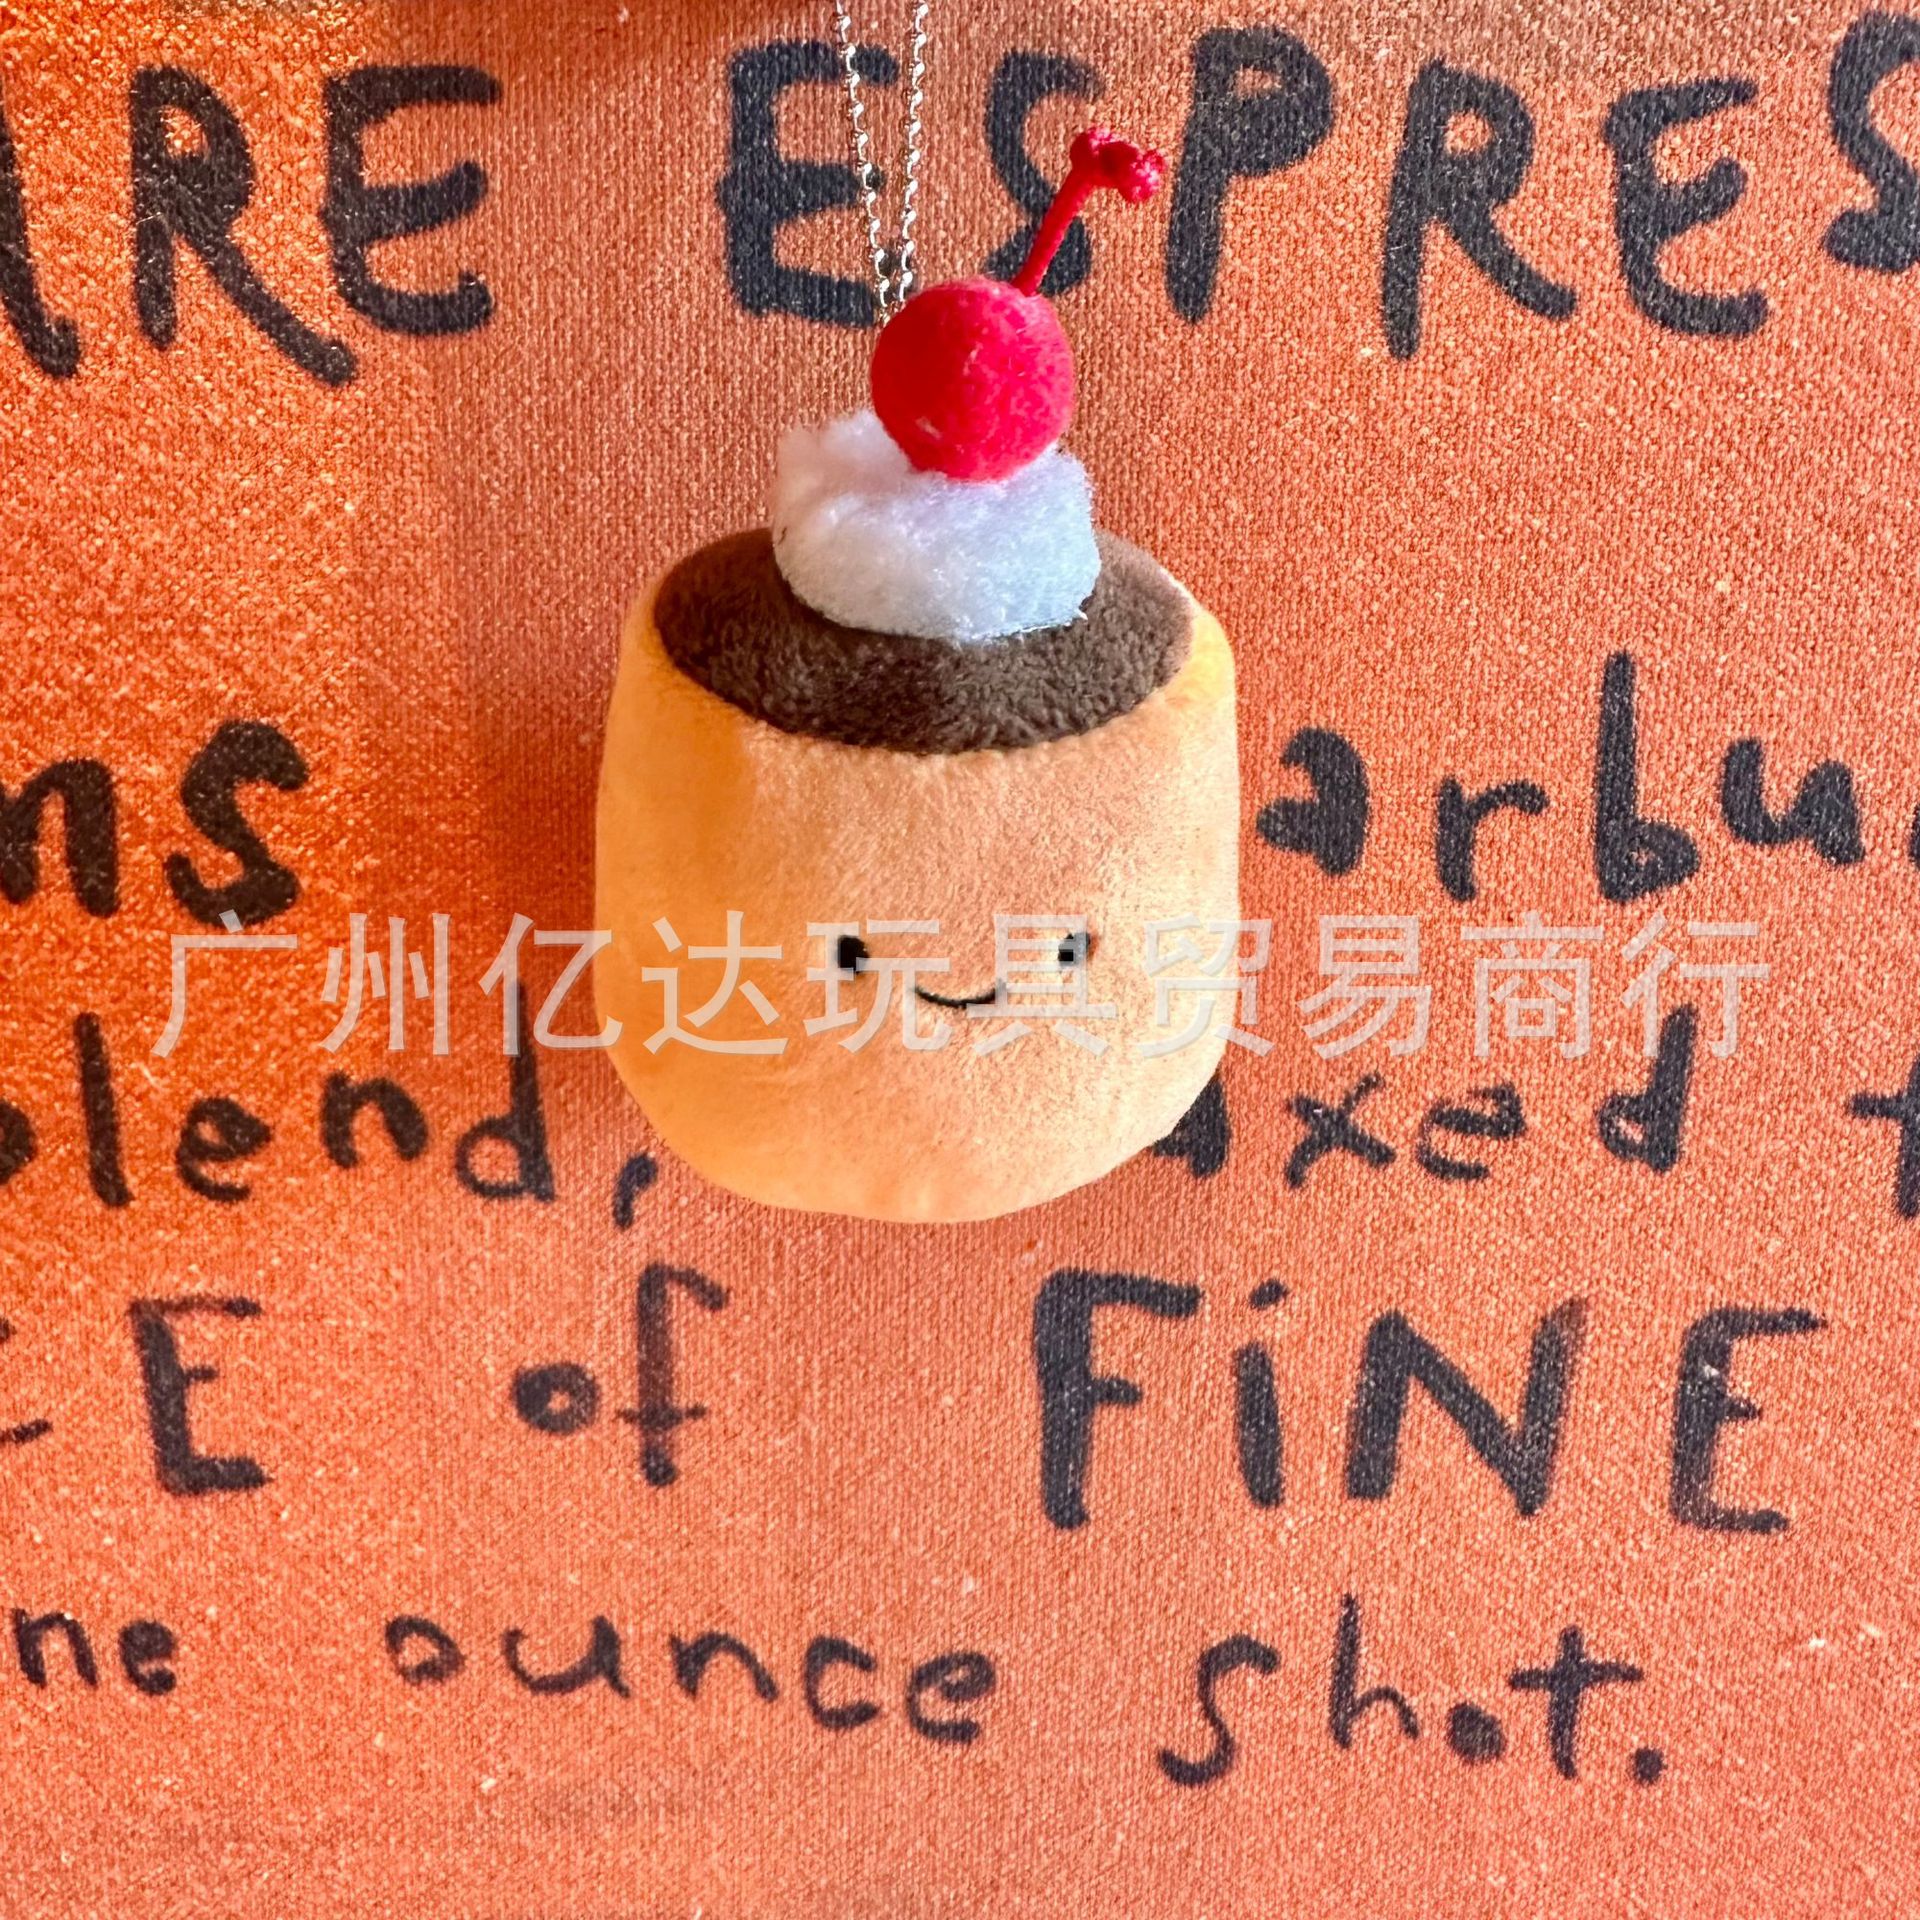 ESPRES
ns arbu
广州亿达玩具贸易商行
blend, axed t
E of FiNE
ne ounce shot.